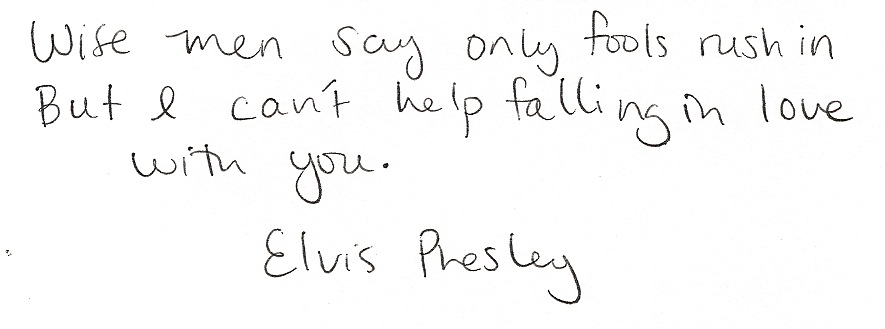 Wise men say only fools rush in
But I can't help falling in love
with you.
Elvis Presley